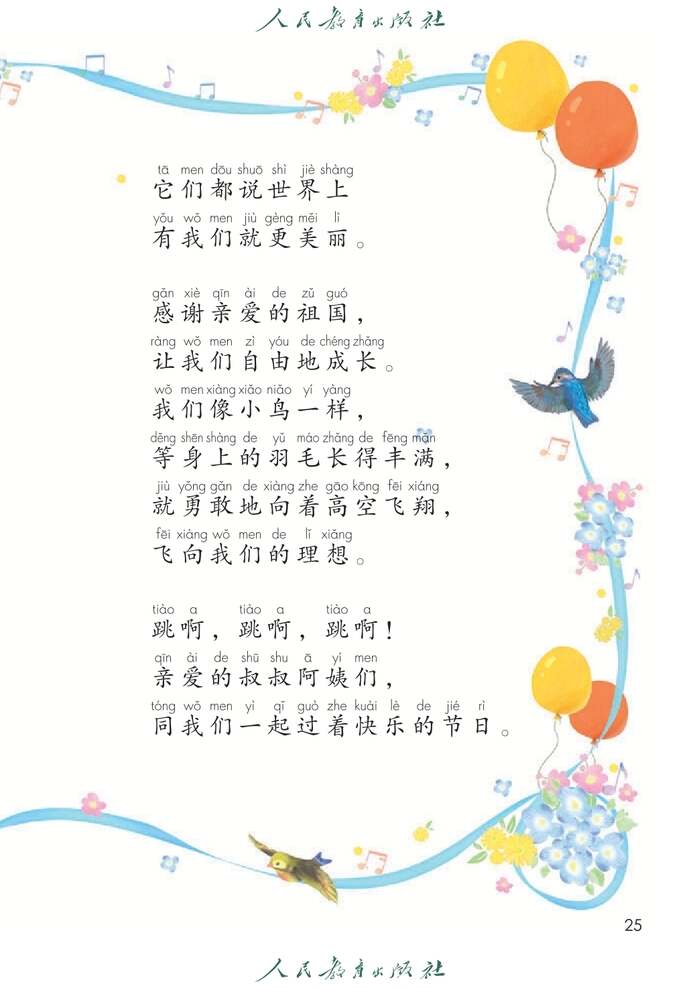 人民教育出版社
tā men dōu shuō shì jiè shàng
它们都说世界上
yǒu wǒ men jiù gèng měi lì
有我们就更美丽。
gǎn xiè qīn ài de zǔ guó
感谢亲爱的祖国，
ràng wǒ men zì yóu de chéng zhǎng
让我们自由地成长。
wǒ men xiàng xiǎo niǎo yí yàng
我们像小鸟一样，
děng shēn shàng de yǔ máo zhǎng de fēng mǎn
等身上的羽毛长得丰满，
jiù yǒng gǎn de xiàng zhe gāo kōng fēi xiáng
就勇敢地向着高空飞翔，
fēi xiàng wǒ men de lǐ xiǎng
飞向我们的理想。
tiào a tiào a tiào a
跳啊，跳啊，跳啊！
qīn ài de shū shu ā yí men
亲爱的叔叔阿姨们，
tóng wǒ men yì qǐ guò zhe kuài lè de jié rì
同我们一起过着快乐的节日。
25
人民教育出版社